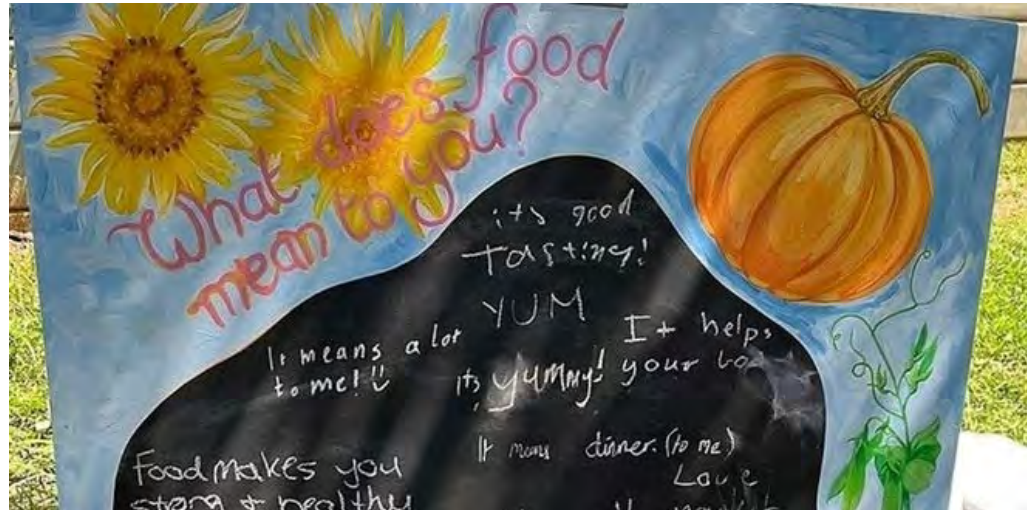 What does food
mean to you?
its good
Tasting!
YUM
It means a lot
to me!
its yummy!
It helps
your
It means dinner. (to me)
Love
Food makes you
strong + healthy
market